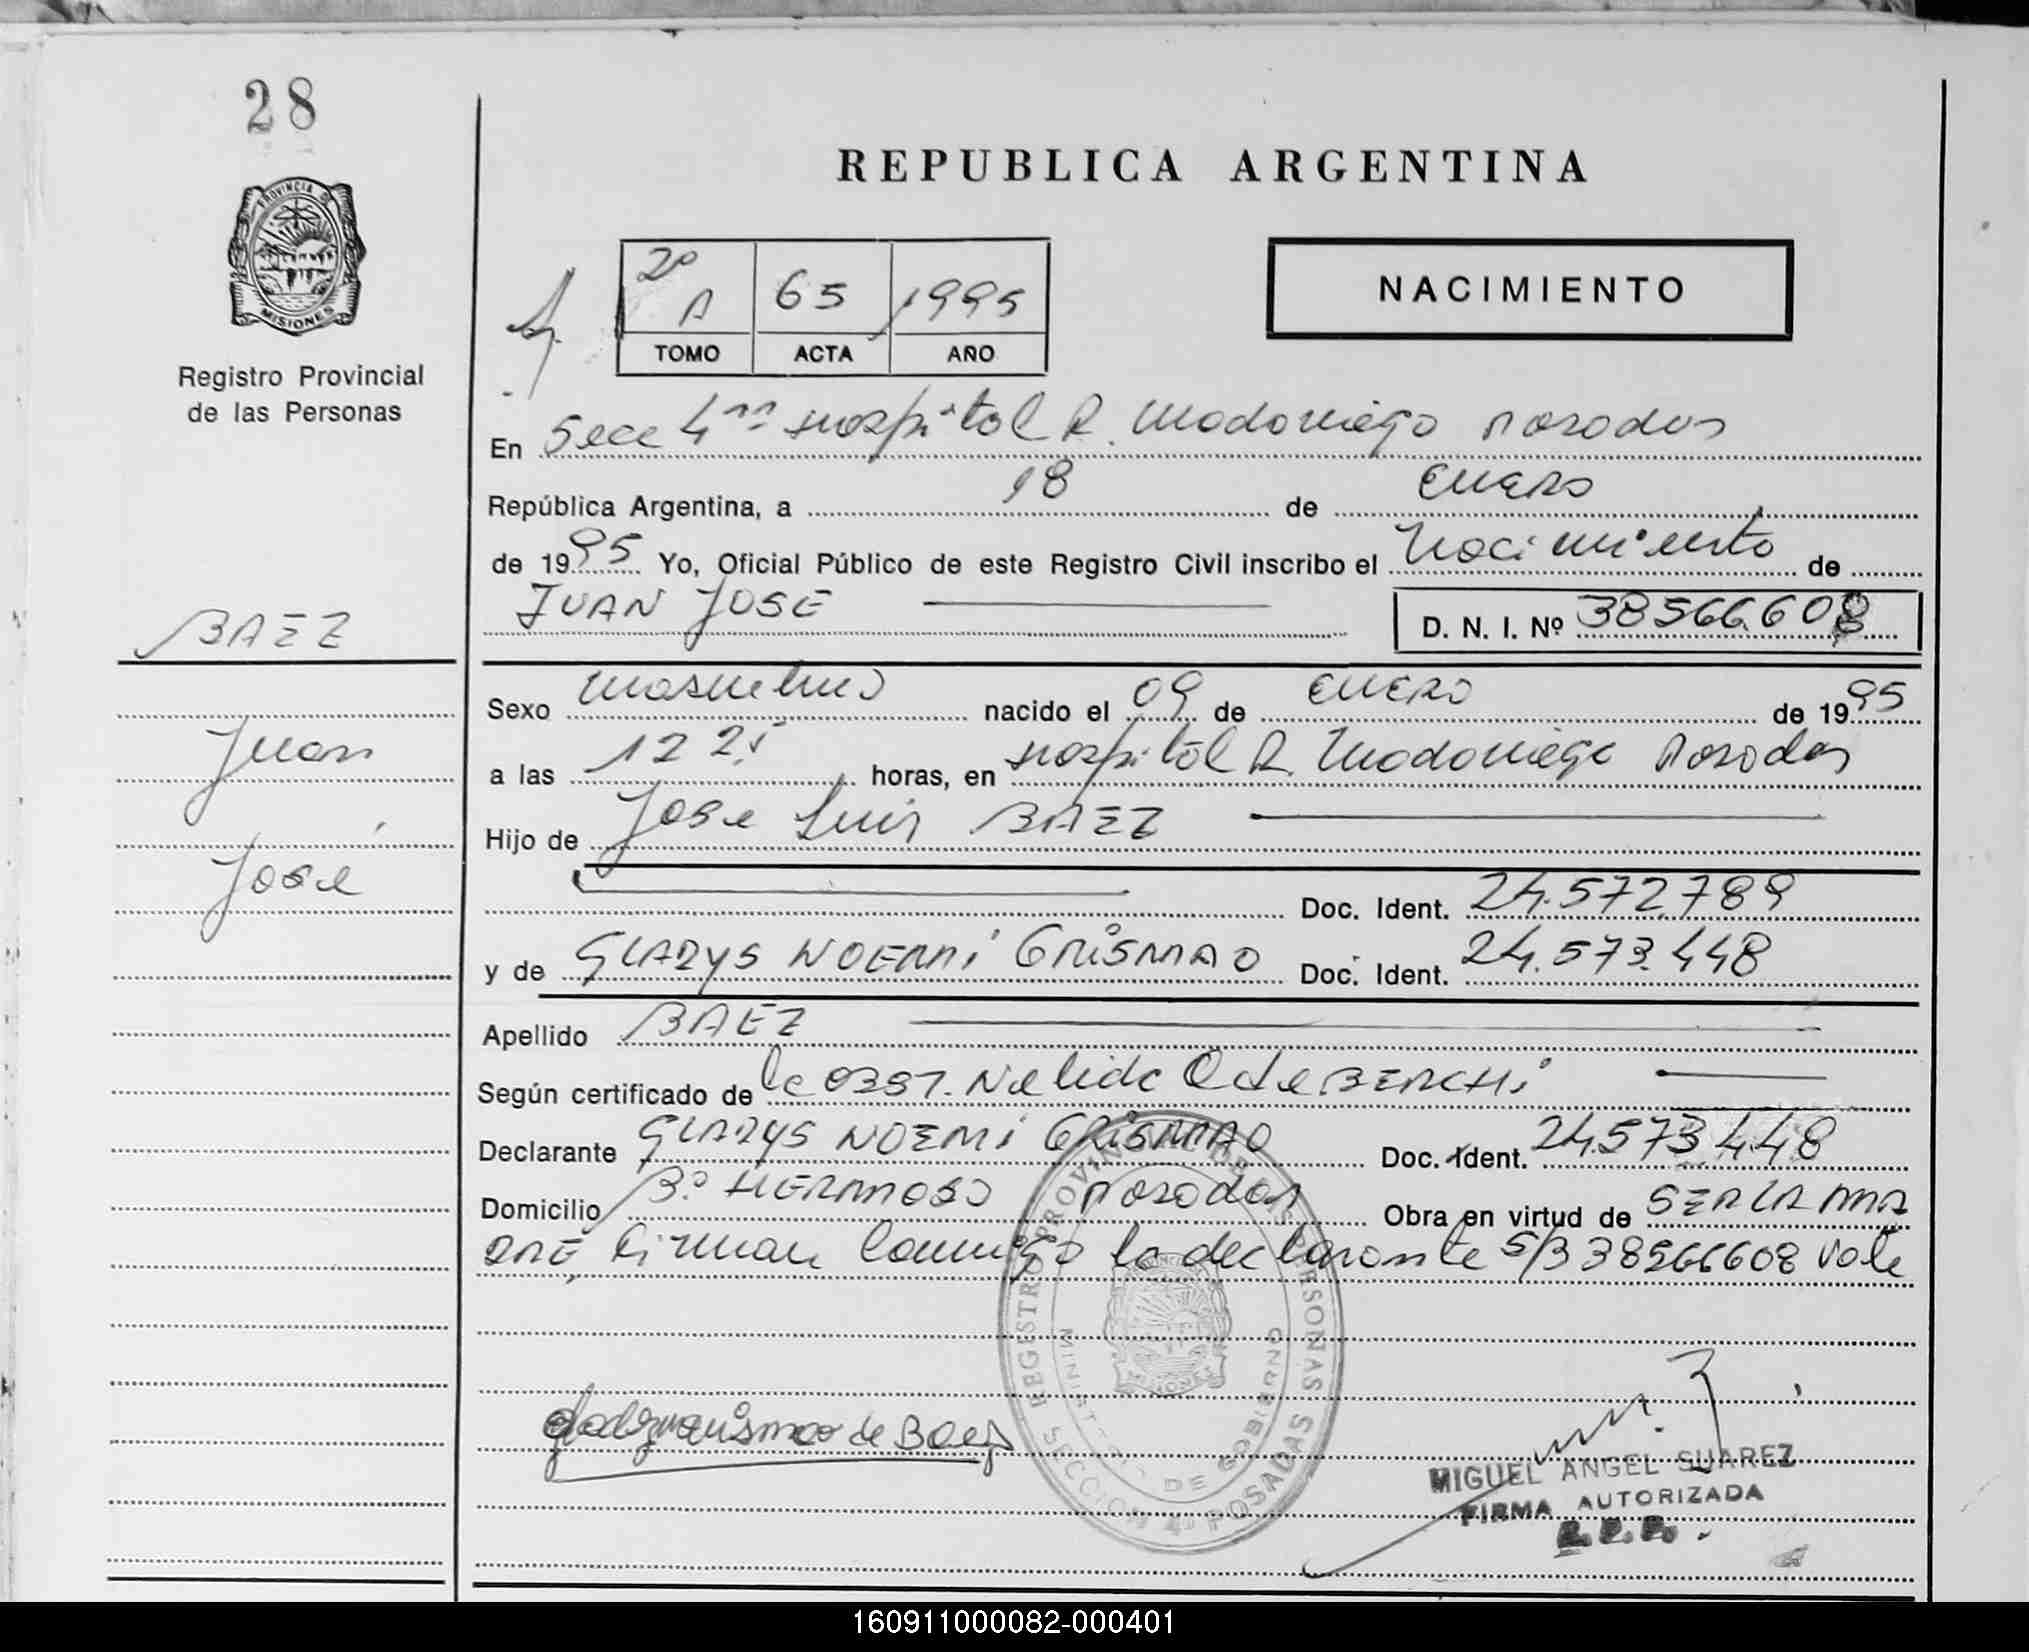 28
REPUBLICA ARGENTINA
PROVINCIA DE
MISIONES
Registro Provincial
de las Personas
2º A 65 1995
TOMO ACTA AÑO
NACIMIENTO
En Secc 4ª Hospital R. Madariaga Posadas
República Argentina, a 18 de ENERO
de 1995 Yo, Oficial Público de este Registro Civil inscribo el Nacimiento de
JUAN JOSE D. N. I. Nº 38566.608
BAEZ
Juan
José
Sexo masculino nacido el 09 de ENERO de 1995
a las 12 25 horas, en Hospital R. Madariaga Posadas
Hijo de Jose Luis BAEZ
Doc. Ident. 24.572.789
y de GLADYS NOEMI Doc. Ident. 24.573.448
Apellido BAEZ
Según certificado de la OBST. Nelida
Declarante GLADYS NOEMI Doc. Ident. 24.573.448
Domicilio Bº HERMOSO Posadas Obra en virtud de SER LA MA
DRE, Firman Conmigo la declarante S/B 38566608 Vale
REGISTRO PROVINCIAL DE LAS PERSONAS
MINISTERIO DE GOBIERNO
SECCION 4ª POSADAS
de Baez
MIGUEL ANGEL SUAREZ
FIRMA AUTORIZADA
R. P. P.
160911000082-000401